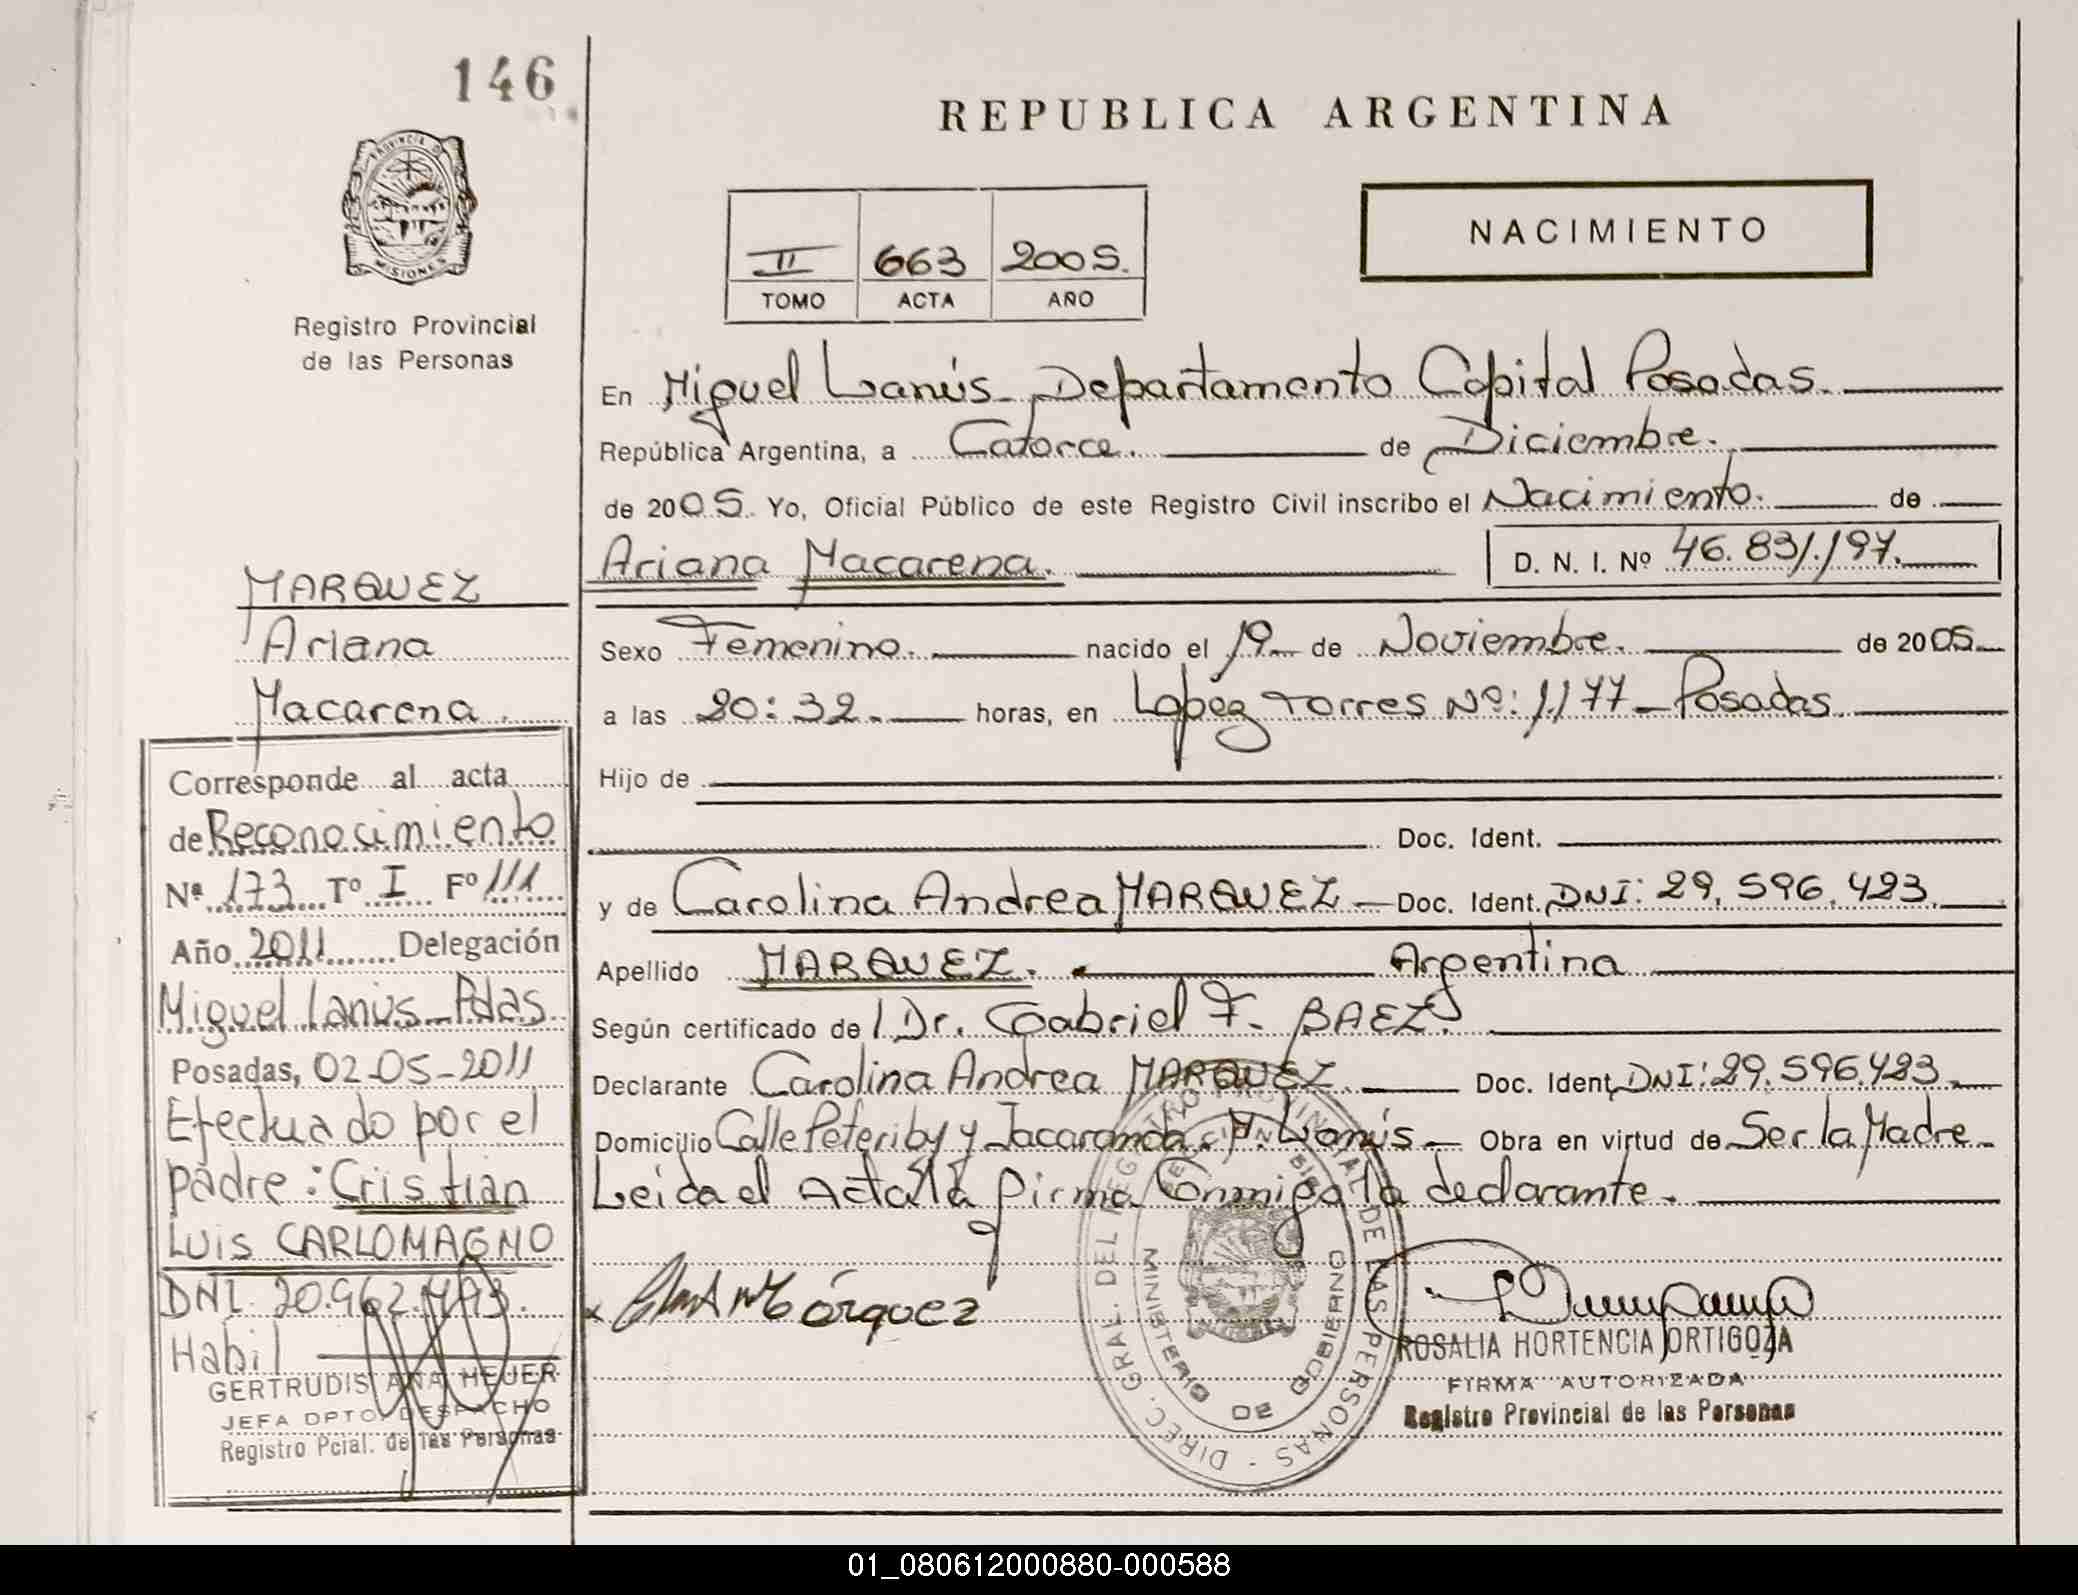 146
PROVINCIA DE
MISIONES
Registro Provincial
de las Personas
MARQUEZ
Ariana
Macarena.
Corresponde al acta
de Reconocimiento
Nº 173 Tº I Fº 111
Año 2011 Delegación
Miguel Lanús - Pdas.
Posadas, 02-05-2011
Efectuado por el
padre: Cristian
Luis CARLOMAGNO
DNI. 20.962.493.
Habil
GERTRUDIS ANA HEUER
JEFA DPTO. DESPACHO
Registro Pcial. de las Personas
REPUBLICA ARGENTINA
NACIMIENTO
II 663 2005.
TOMO ACTA AÑO
En Miguel Lanús - Departamento Capital Posadas.
República Argentina, a Catorce. de Diciembre.
de 2005. Yo, Oficial Público de este Registro Civil inscribo el Nacimiento. de
Ariana Macarena. D. N. I. Nº 46.831.197.
Sexo Femenino. nacido el 19 de Noviembre. de 2005
a las 20:32. horas, en Lopez Torres Nº: 1177 - Posadas.
Hijo de
Doc. Ident.
y de Carolina Andrea MARQUEZ - Doc. Ident. DNI: 29.596.423.
Apellido MARQUEZ. Argentina
Según certificado de Dr. Gabriel F. BAEZ.
Declarante Carolina Andrea MARQUEZ. Doc. Ident. DNI: 29.596.423.
Domicilio Calle Peteriby y Jacaranda. M. Lanús - Obra en virtud de Ser la Madre
Leida el Acta la firma Conmigo la declarante.
Márquez
DIREC. GRAL. DEL REGISTRO PROVINCIAL DE LAS PERSONAS
MINISTERIO DE GOBIERNO
ROSALIA HORTENCIA ORTIGOZA
FIRMA AUTORIZADA
Registro Provincial de las Personas
01_080612000880-000588